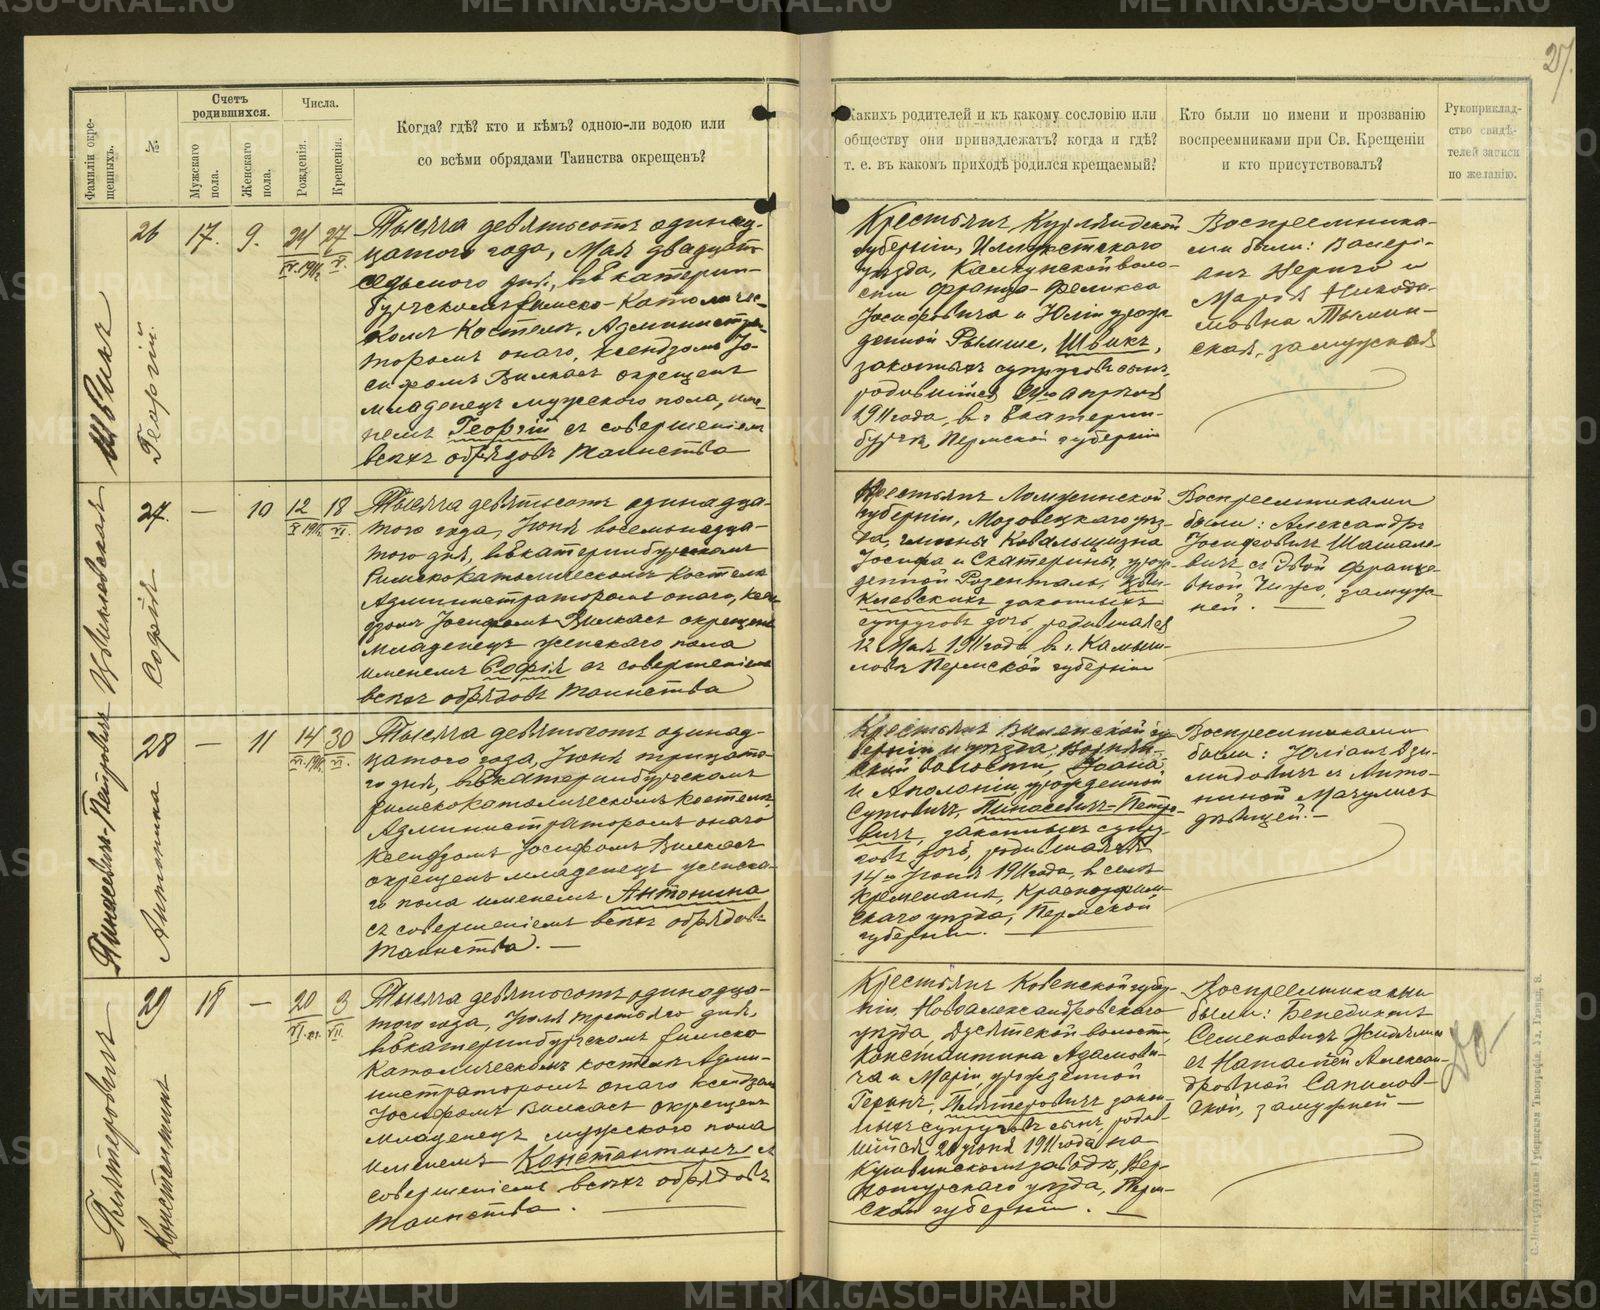 27.
Фамиліи окре-
щенныхъ.
№
Счетъ
родившихся.
Мужскаго
пола.
Женскаго
пола.
Числа.
Рожденія.
Крещенія.
Когда? гдѣ? кто и кѣмъ? одною-ли водою или
со всѣми обрядами Таинства окрещенъ?
Какихъ родителей и къ какому сословію или
обществу они принадлежатъ? когда и гдѣ?
т. е. въ какомъ приходѣ родился крещаемый?
Кто были по имени и прозванію
воспреемниками при Св. Крещеніи
и кто присутствовалъ?
Рукоприклад-
ство свидѣ-
телей записи
по желанію.
Швикъ
26
Георгій
17.
9.
27
V.
Тысяча девятьсотъ одинад-
цатого года, Мая двадцать
седьмого дня, въ Екатерин-
бургскомъ Римско-Католичес-
комъ Костелѣ, Администра-
торомъ онаго, ксендзомъ Іо-
сифомъ Вилкасъ окрещенъ
младенецъ мужского пола, име-
немъ Георгій съ совершеніемъ
всѣхъ обрядовъ таинства
Крестьянъ Курляндской
губерніи, Иллукстскаго
уѣзда, Калкунской воло-
сти Франца-Феликса
Іосифовича и Юліи урож-
денной Рымше, Швикъ,
законныхъ супруговъ сынъ,
родившійся апрѣля
1911 года, въ г. Екатерин-
бургѣ, Пермской губерніи
Воспреемника-
ми были: Валері-
анъ Нериго и
Марія Никоди-
мовна
замужняя
27.
Софія
—
10
12
V 1911
18
VI.
Тысяча девятьсотъ одинадца-
того года, Іюня восемьнадца-
того дня, въ Екатеринбургскомъ
Римскокатолическомъ Костелѣ
Администраторомъ онаго, ксен-
дзомъ Іосифомъ Вилкасъ окрещенъ
младенецъ женскаго пола
именемъ Софія съ совершеніемъ
всѣхъ обрядовъ таинства
Крестьянъ Ломжинской
губерніи, Мазовецкаго уѣз-
да, гмины Ковальщизна
Іосифа и Екатерины, урож-
денной Розенталь,
законныхъ
супруговъ дочь, родившаяся
12 Мая 1911 года, въ г. Камыш-
ловѣ Пермской губерніи
Воспреемниками
были: Александръ
Іосифовичъ
съ Францe-
замуж-
ней.
Пинасевичъ-Петровичъ
28
Антонина
—
11
14
VI. 1911
30
VI.
Тысяча девятьсотъ одинад-
цатого года, Іюня тридцата-
го дня, въ Екатеринбургскомъ
Римскокатолическомъ Костелѣ
Администраторомъ онаго
ксендзомъ Іосифомъ Вилкасъ
окрещенъ младенецъ женска-
го пола именемъ Антонина
съ совершеніемъ всѣхъ обрядовъ
таинства. —
Крестьянъ Виленской гу-
берніи и уѣзда,
волости, Іоана
и Аполоніи, урожденной
Сутовичъ, Пинасевичъ-Петро-
вичъ, законныхъ супру-
говъ дочь, родившаяся
14 го Іюня 1911 года, въ селѣ
Красноуфим-
скаго уѣзда, Пермской
губерніи. —
Воспреемниками
были: Юліанъ
съ Анто-
ниной Мачулисъ
дѣвицей. —
Пятеровичъ
29
Константинъ
18
—
20
VI.
3
VII.
Тысяча девятьсотъ одинадца-
того года, Іюля третьяго дня,
въ Екатеринбургскомъ Римско
Католическомъ костелѣ Адми-
нистраторомъ онаго ксендзомъ
Іосифомъ Вилкасъ окрещенъ
младенецъ мужского пола
именемъ Константинъ съ
совершеніемъ всѣхъ обрядовъ
таинства.
Крестьянъ Ковенской губер-
ніи, Новоалександровскаго
уѣзда, Дусятской волости,
Константина Адамови-
ча и Маріи, урожденной
Пятеровичъ закон-
ныхъ супруговъ сынъ, родив-
шійся 20 іюня 1911 года на
Кушвинскомъ заводѣ, Вер-
хотурскаго уѣзда, Перм-
ской губерніи. —
Воспреемниками
были: Бенедиктъ
Семеновичъ
съ Наталіей Алексан-
дровной Сапилов-
ской, замужней —
METRIKI.GASO-URAL.RU